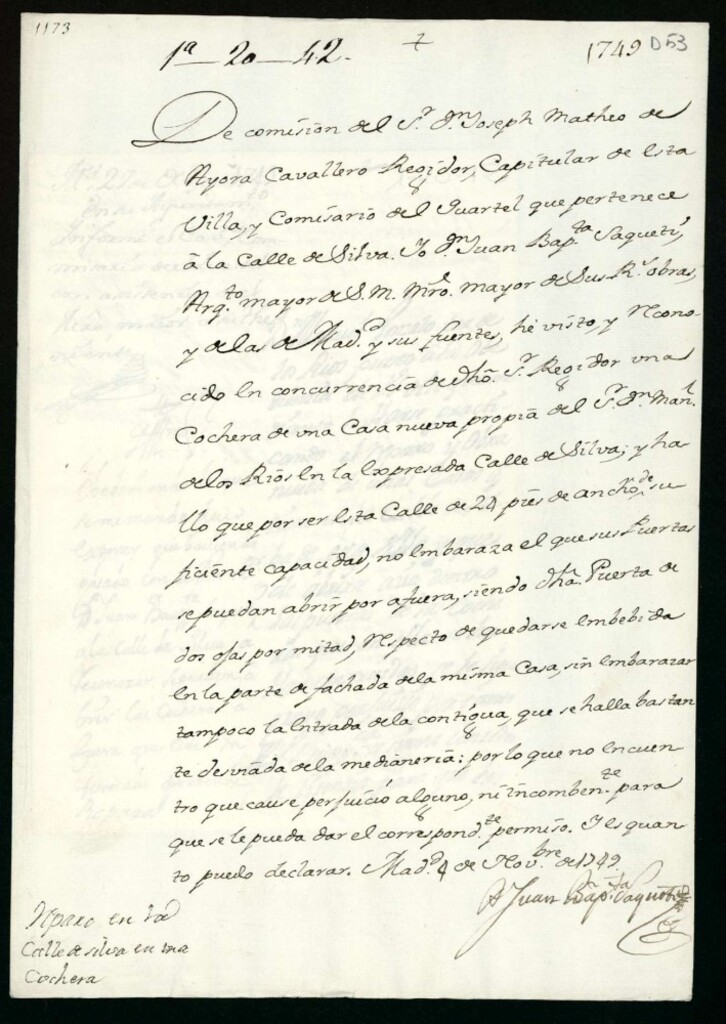 1173
1ª 20 42.
1749 D 53
De comision del S.r D.n Joseph Matheo de
Ayora Cavallero Regidor, Capitular de esta
Villa, y Comisario del Quartel que pertenece
à la Calle de Silva. Yo D.n Juan Bap.ta Saqueti,
Arq.to mayor de S. M. Mro. mayor de Sus R.s obras,
y de las de Mad.d y sus fuentes, hè visto, y recono
cido en concurrencia de dhô. S.r Regidor una
Cochera de una Casa nueva propia del S.r D.n Man.l
de los Rios en la expresada Calle de Silva; y ha
llo que por ser esta Calle de 24 pies de ancho, de su
ficiente capacidad, no embaraza el que sus Puertas
se puedan abrir por afuera, siendo dhâ. Puerta de
dos ojas por mitad, respecto de quedarse embebida
en la parte de fachada de la misma Casa, sin embarazar
tampoco la entrada de la contigua, que se halla bastan
te desviada de la medianeria; por lo que no encuen
tro que cause perjuicio alguno, ni incomben.te para
que se le pueda dar el correspond.te permiso. Y es quan
to puedo declarar. Mad.d 4 de Nov.bre de 1749
D.n Juan Bap.ta Saqueti
Reparo en la
Calle de silva en una
Cochera